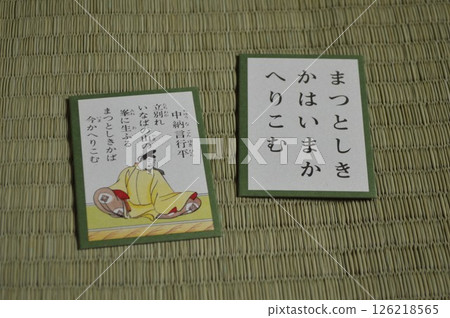 中納言行平
立別れ
いなばの山の
峯に生ふる
まつとしきかば
今かへりこむ
まつとしき
かはいまか
へりこむ
PIXTA
126218565